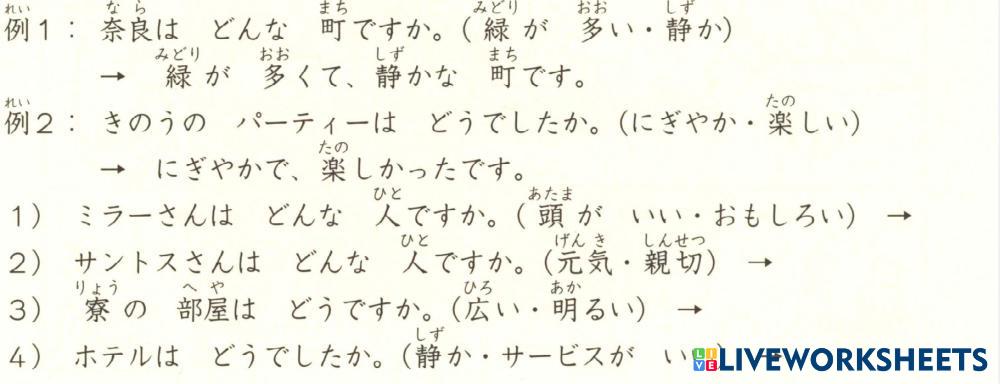 例1： 奈良は どんな 町ですか。(緑が 多い・静か)
→ 緑が 多くて、静かな 町です。
例2： きのうの パーティーは どうでしたか。(にぎやか・楽しい)
→ にぎやかで、楽しかったです。
1) ミラーさんは どんな 人ですか。(頭が いい・おもしろい) →
2) サントスさんは どんな 人ですか。(元気・親切) →
3) 寮の 部屋は どうですか。(広い・明るい) →
4) ホテルは どうでしたか。(静か・サービスが い
LIVEWORKSHEETS